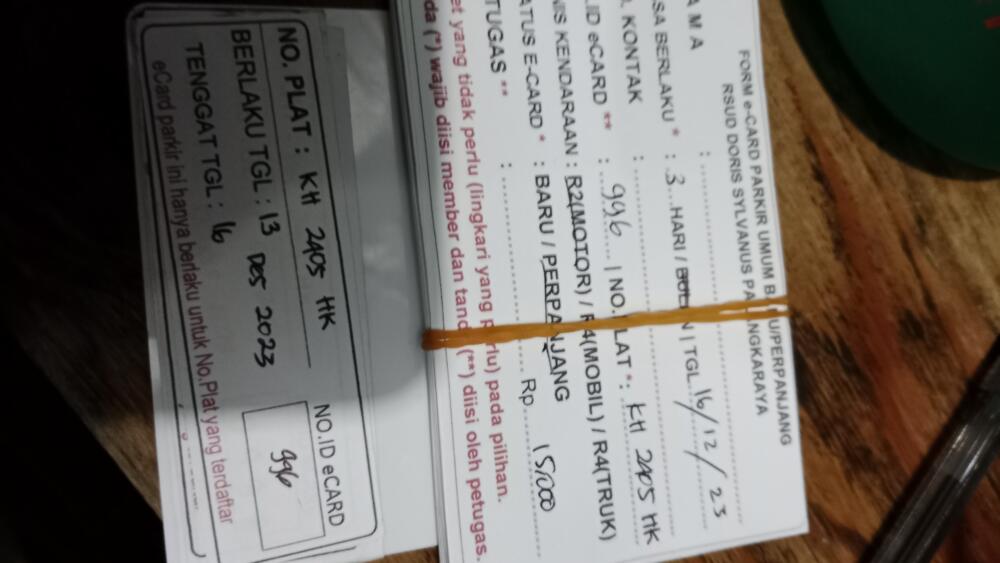 FORM e-CARD PARKIR UMUM B U/PERPANJANG
RSUD DORIS SYLVANUS PA NGKARAYA
A M A :
SA BERLAKU * : 3 HARI / BUL N | TGL. 16/12/23
. KONTAK :
.ID eCARD ** : 996 | NO. LAT *: KH 2405 HK
NIS KENDARAAN : R2(MOTOR) / R4(MOBIL) / R4(TRUK)
ATUS E-CARD * : BARU / PERPANJANG
TUGAS ** : Rp 15,000
et yang tidak perlu (lingkari yang perlu) pada pilihan.
da (*) wajib diisi member dan tand (**) diisi oleh petugas.
NO. PLAT : KH 2405 HK
BERLAKU TGL : 13 Des 2023
TENGGAT TGL : 16
NO.ID eCARD
996
eCard parkir ini hanya berlaku untuk No.Plat yang terdaftar